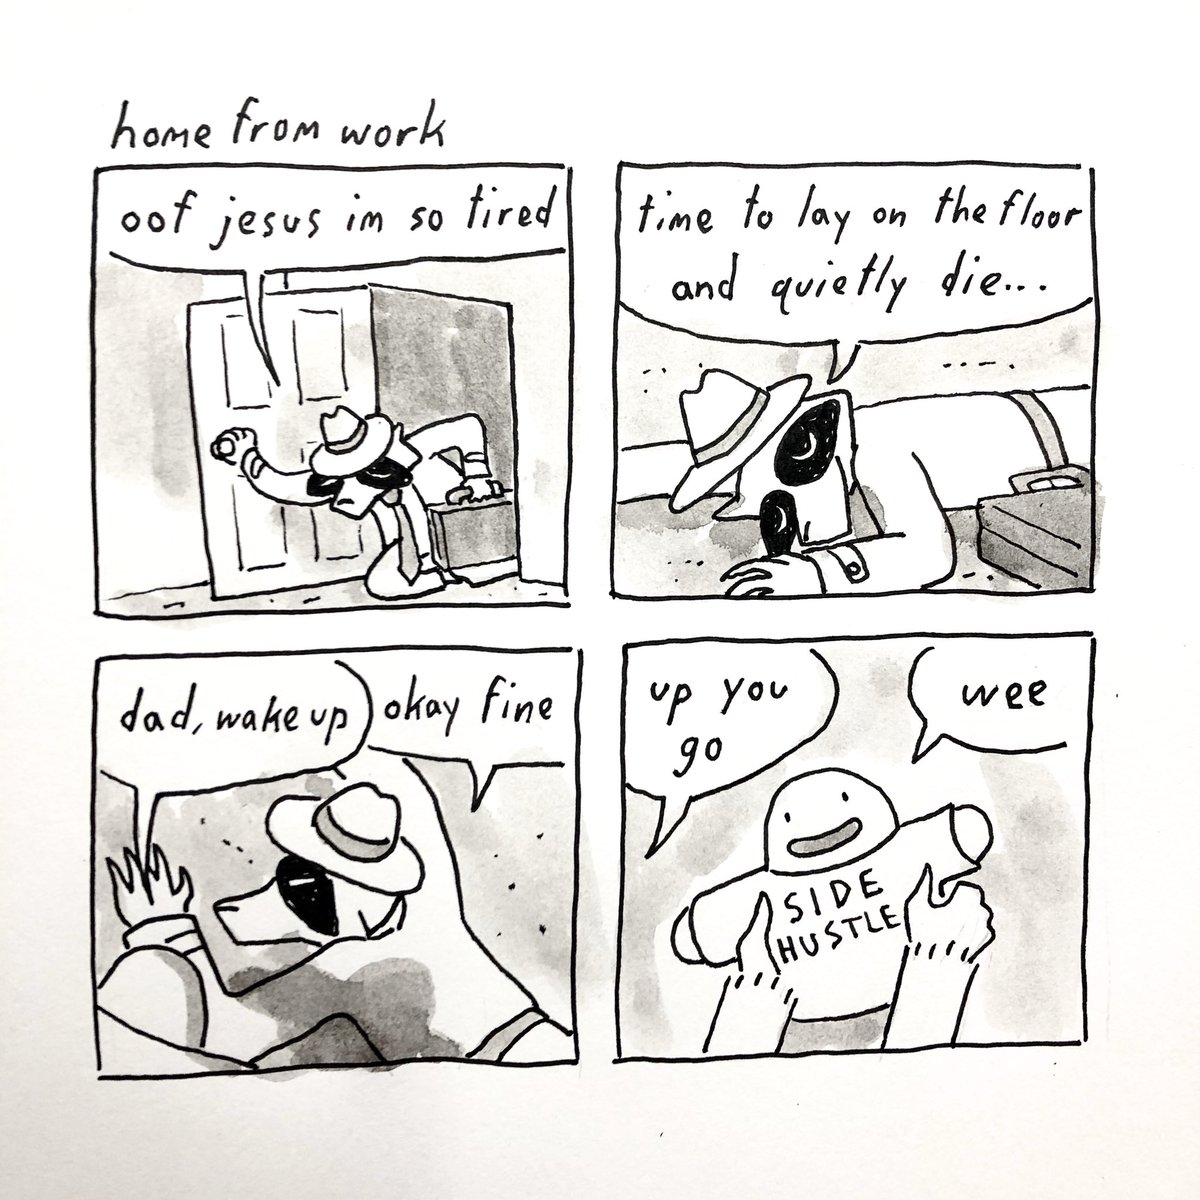 home from work
oof jesus im so tired
time to lay on the floor
and quietly die...
dad, wake up
okay fine
up you
go
wee
SIDE
HUSTLE